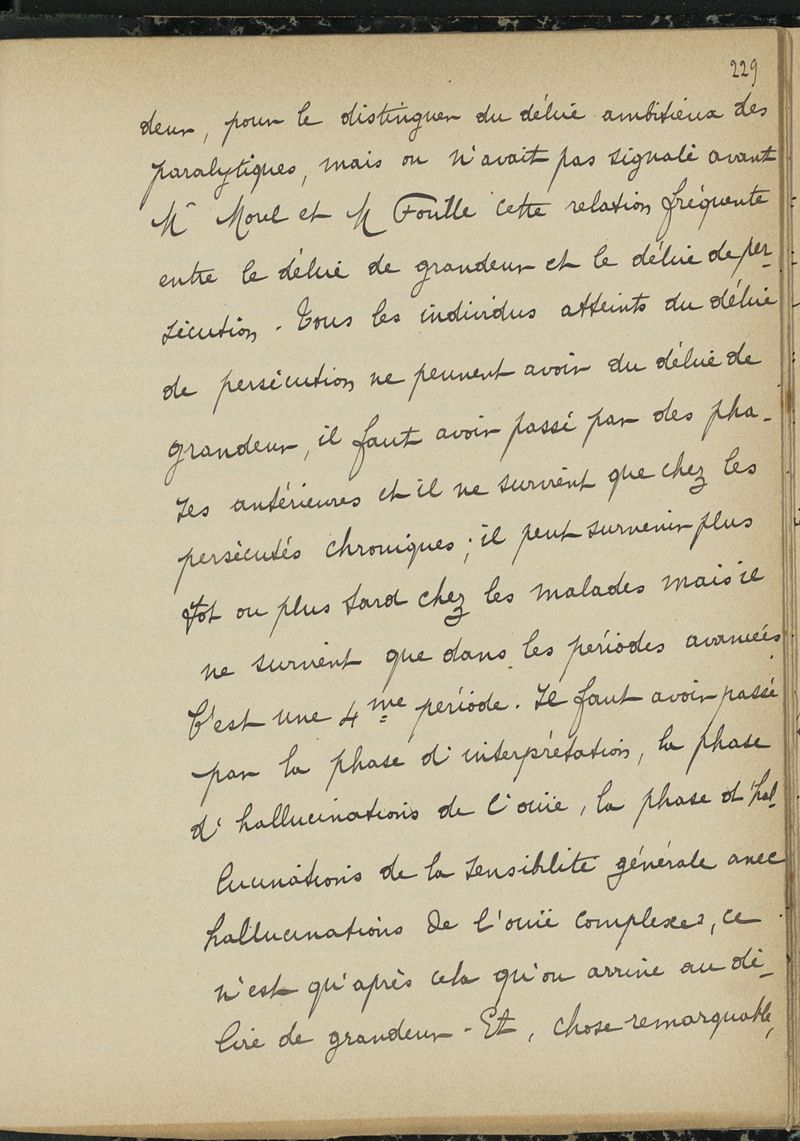 229
deur, pour le distinguer du délire ambitieux des
paralytiques, mais on n'avait pas signalé avant
Mr Morel et M Foville cette relation fréquente
entre le délire de grandeur et le délire de per-
sécution. Tous les individus atteints du délire
de persécution ne peuvent avoir du délire de
grandeur, il faut avoir passé par des pha-
ses antérieures et il ne survient que chez les
persécutés chroniques; il peut survenir plus
tôt ou plus tard chez les malades mais il
ne survient que dans les périodes avancées.
C'est une 4me période. Il faut avoir passé
par la phase d'interprétation, la phase
d'hallucinations de l'ouïe, la phase d'hal-
lucinations de la sensibilité générale avec
hallucinations de l'ouïe complexes, ce
n'est qu'après cela qu'on arrive au dé-
lire de grandeur - Et, chose remarquable,